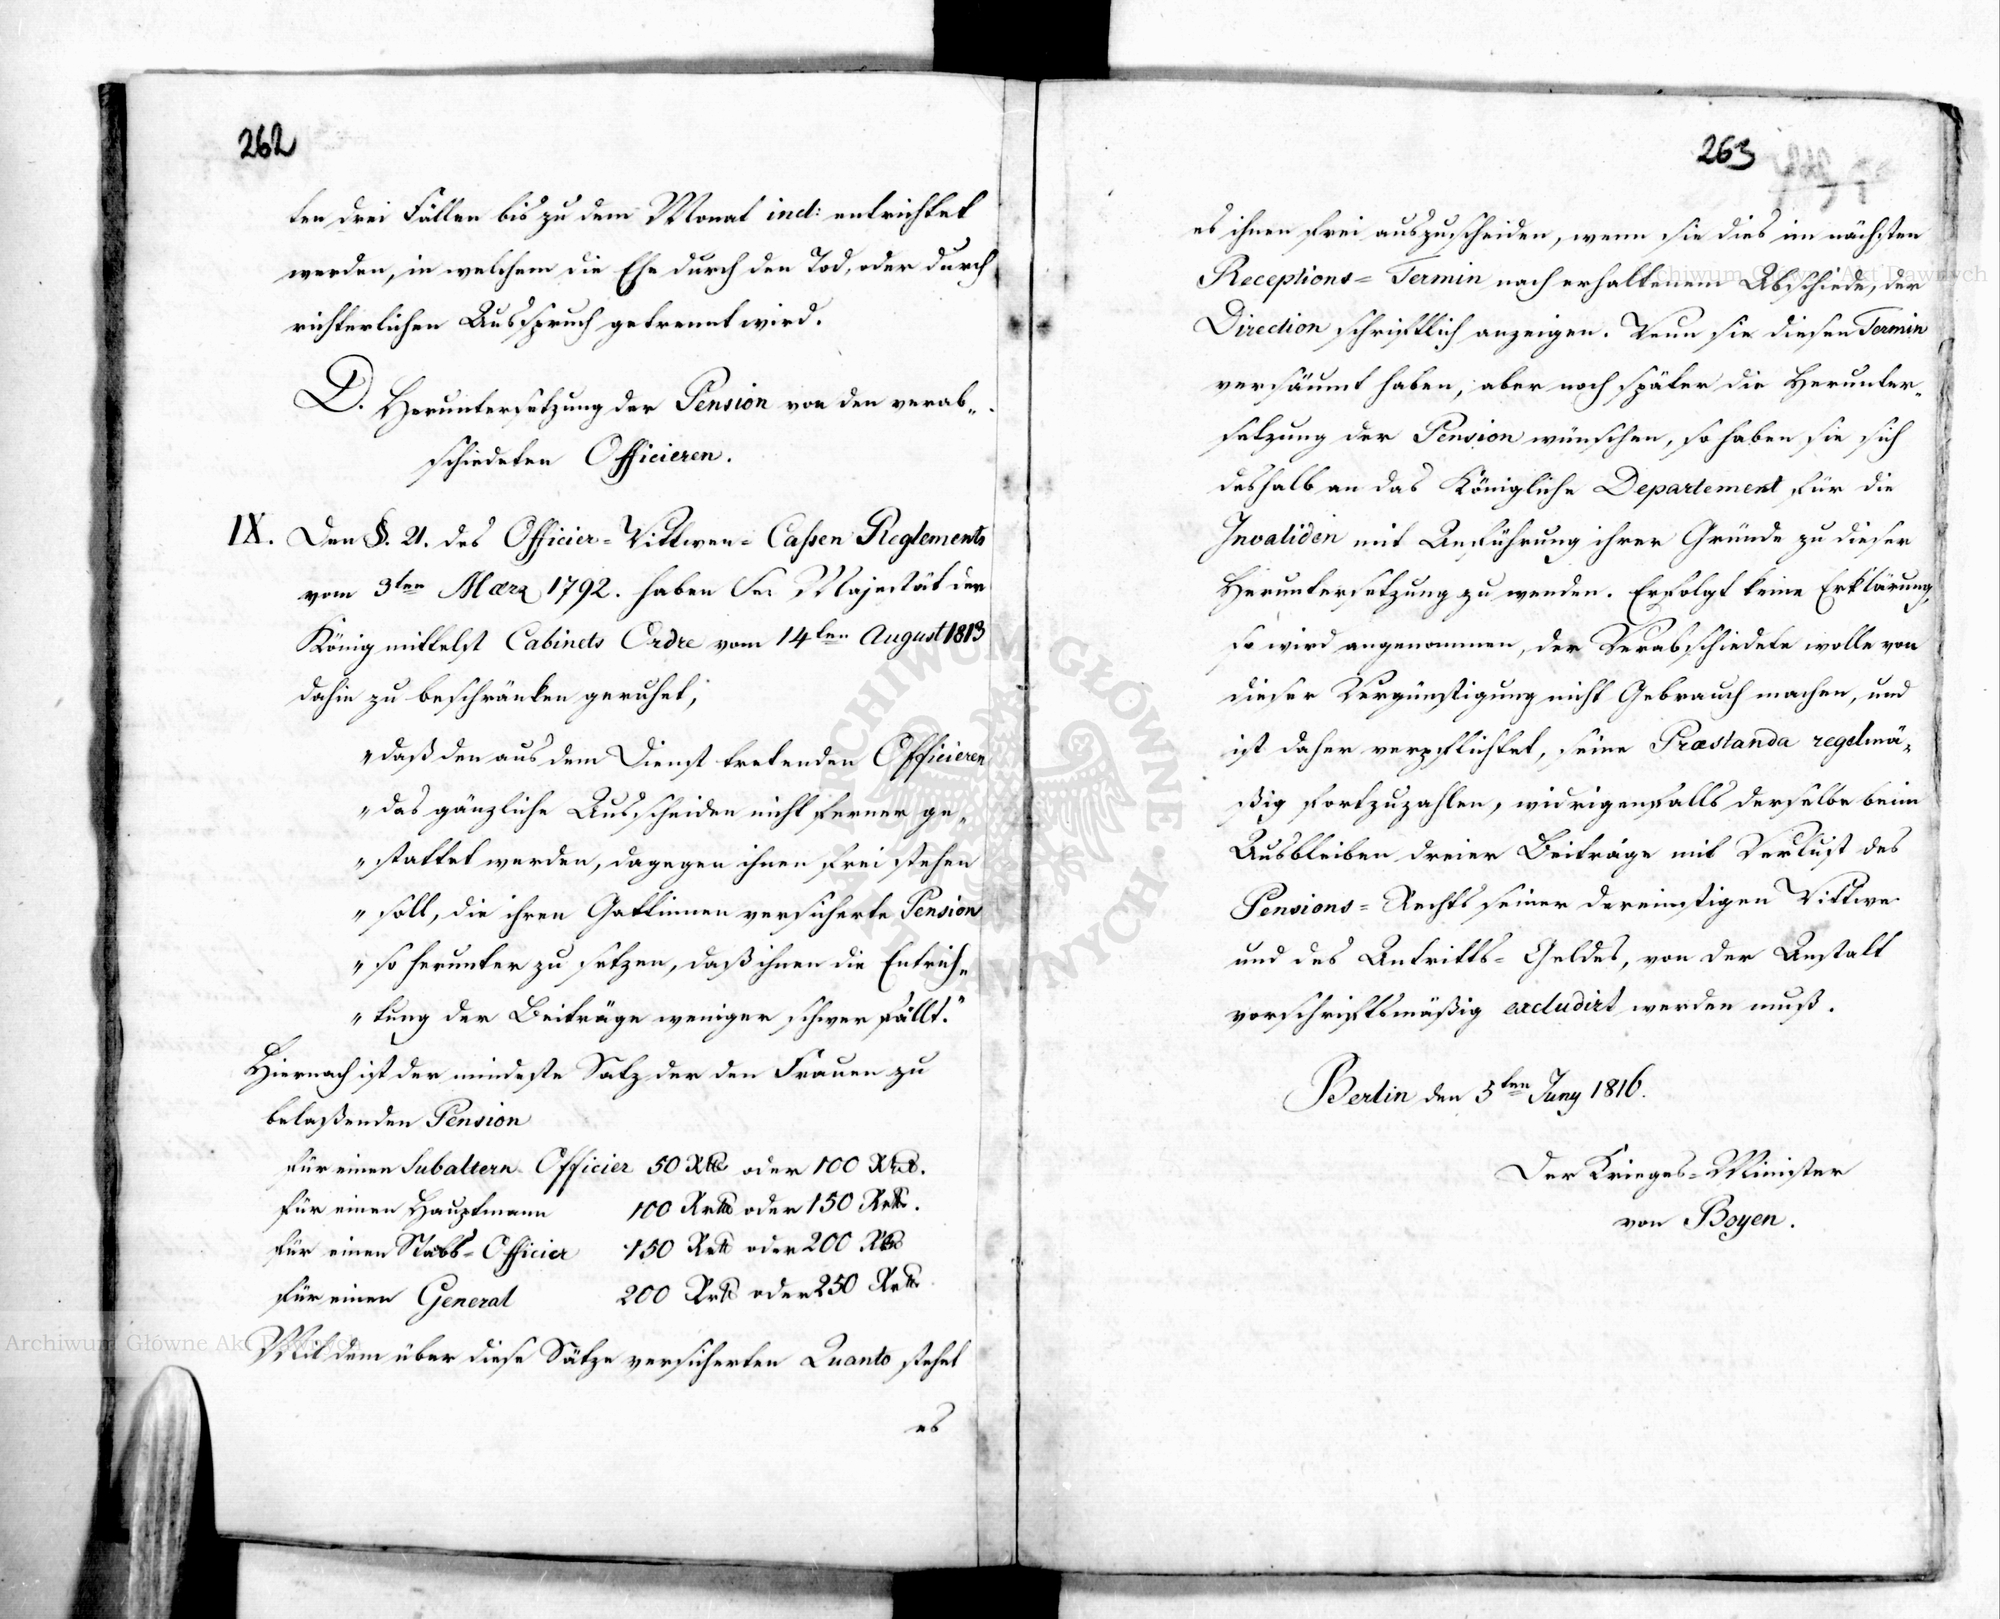 262
ten drei Fällen bis zu dem Monat incl: entrichtet
werden, in welchem die Ehe durch den Tod, oder durch
richterlichen Ausspruch getrennt wird.
D. Heruntersetzung der Pension von den verab-
schiedeten Officieren.
IX. Den §. 21. des Officier-Wittwen-Caßen Reglements
vom 3ten Maerz 1792. haben Se. Majestät der
König mittelst Cabinets Ordre vom 14ten August 1813
dahin zu beschränken geruhet,
"daß den aus dem Dienst tretenden Officieren
"das gänzliche Ausscheiden nicht ferner ge-
"stattet werden, dagegen ihnen frei stehen
"soll, die ihren Gattinnen versicherte Pension
"so herunter zu setzen, daß ihnen die Entrich-
"tung der Beiträge weniger schwer fällt."
Hiernach ist der mindeste Satz der den Frauen zu
belaßenden Pension
für einen Subaltern Officier 50 Rtlr oder 100 Rtlr.
für einen Hauptmann 100 Rtlr oder 150 Rtlr.
für einen Stabs-Officier 150 Rtlr oder 200 Rtlr
für einen General 200 Rtlr oder 250 Rtlr
Mit dem über diese Sätze versicherten Quanto stehet
es
263
es ihnen frei auszuscheiden, wenn sie dies im nächsten
Receptions-Termin nach erhaltenem Abschiede, der
Direction schriftlich anzeigen. Wenn sie diesen Termin
versäumt haben, aber noch später die Herunter-
setzung der Pension wünschen, so haben sie sich
deshalb an das Königliche Departement für die
Invaliden mit Anführung ihrer Gründe zu dieser
Heruntersetzung zu wenden. Erfolgt keine Erklärung,
so wird angenommen, der Verabschiedete wolle von
dieser Vergünstigung nicht Gebrauch machen, und
ist daher verpflichtet, seine Praestanda regelmä-
ßig fortzuzahlen, widrigenfalls derselbe beim
Ausbleiben dreier Beiträge mit Verlust des
Pensions-Rechts seiner dereinstigen Wittwe
und des Antritts-Geldes, von der Anstalt
vorschriftsmäßig excludirt werden muß.
Berlin den 5ten Juny 1816.
Der Krieges-Minister
von Boyen.
Archiwum Główne Akt Dawnych
Archiwum Główne Akt Dawnych
ARCHIWUM GŁÓWNE AKT DAWNYCH